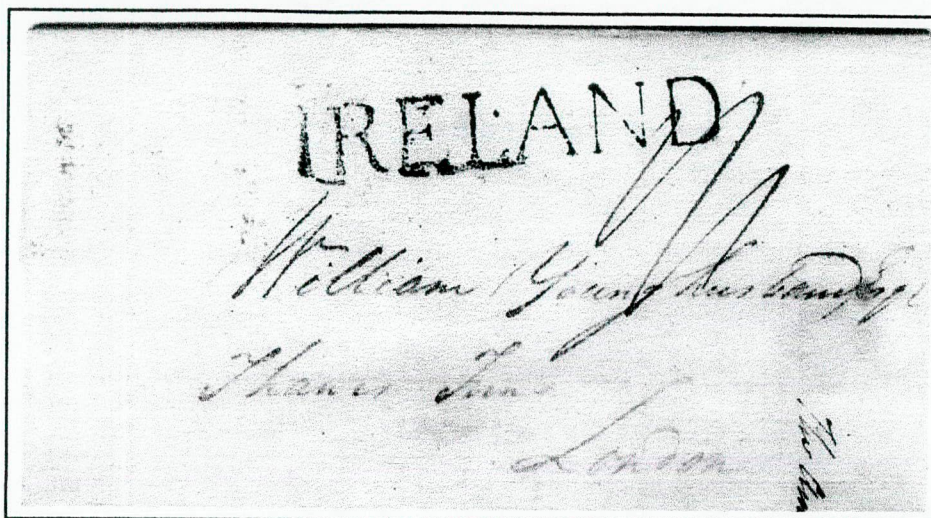 IRELAND
William Younghusband Esqr
Thavies Inn
London